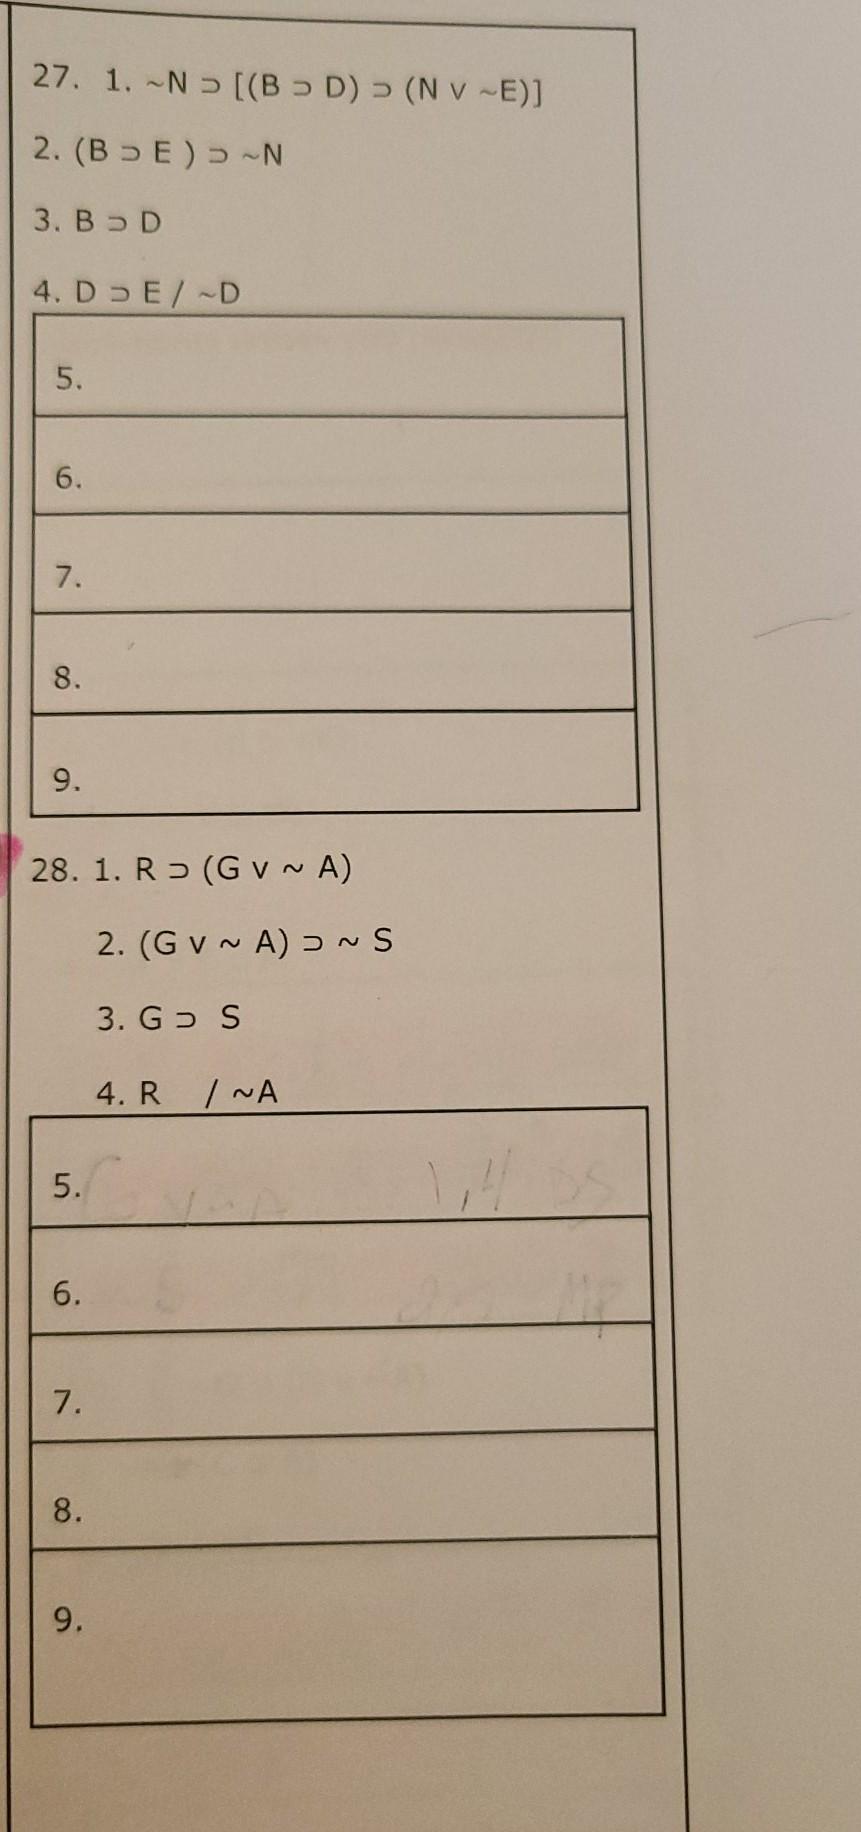 27. 1. ~N ⊃ [(B ⊃ D) ⊃ (N v ~E)]
2. (B ⊃ E ) ⊃ ~N
3. B ⊃ D
4. D ⊃ E / ~D
5.
6.
7.
8.
9.
28. 1. R ⊃ (G v ~ A)
2. (G v ~ A) ⊃ ~ S
3. G ⊃ S
4. R / ~A
5. G v ~A 1,4 DS
6. S MP
7.
8.
9.